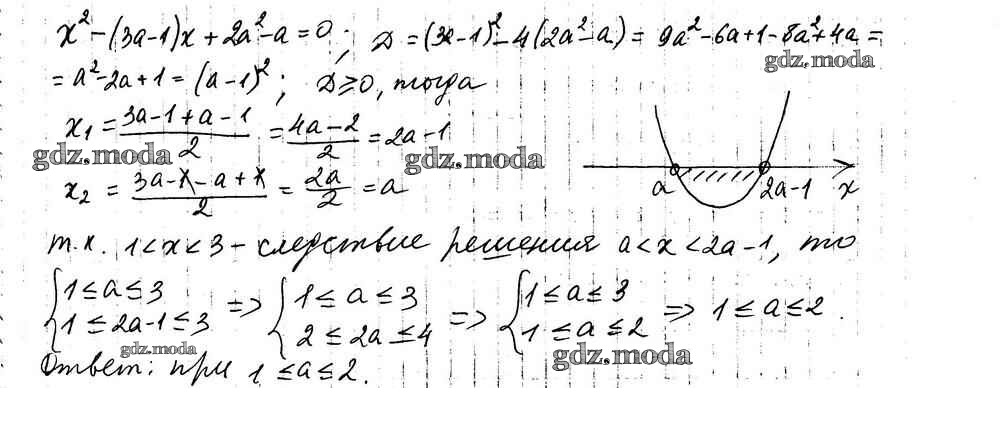 x² - (3a-1)x + 2a² - a = 0 ; D = (3a-1)² - 4(2a² - a) = 9a² - 6a + 1 - 8a² + 4a =
gdz.moda
= a² - 2a + 1 = (a-1)² ; D ≥ 0, тогда
x₁ = (3a-1+a-1)/2 = (4a-2)/2 = 2a-1
gdz.moda gdz.moda
x₂ = (3a-1-a+1)/2 = 2a/2 = a
a 2a-1 x
т.к. 1<x<3 - следствие решения a<x<2a-1, то
{1≤a≤3 => {1≤a≤3 => {1≤a≤3 => 1≤a≤2.
{1≤2a-1≤3 {2≤2a≤4 {1≤a≤2
gdz.moda gdz.moda
Ответ: при 1≤a≤2.